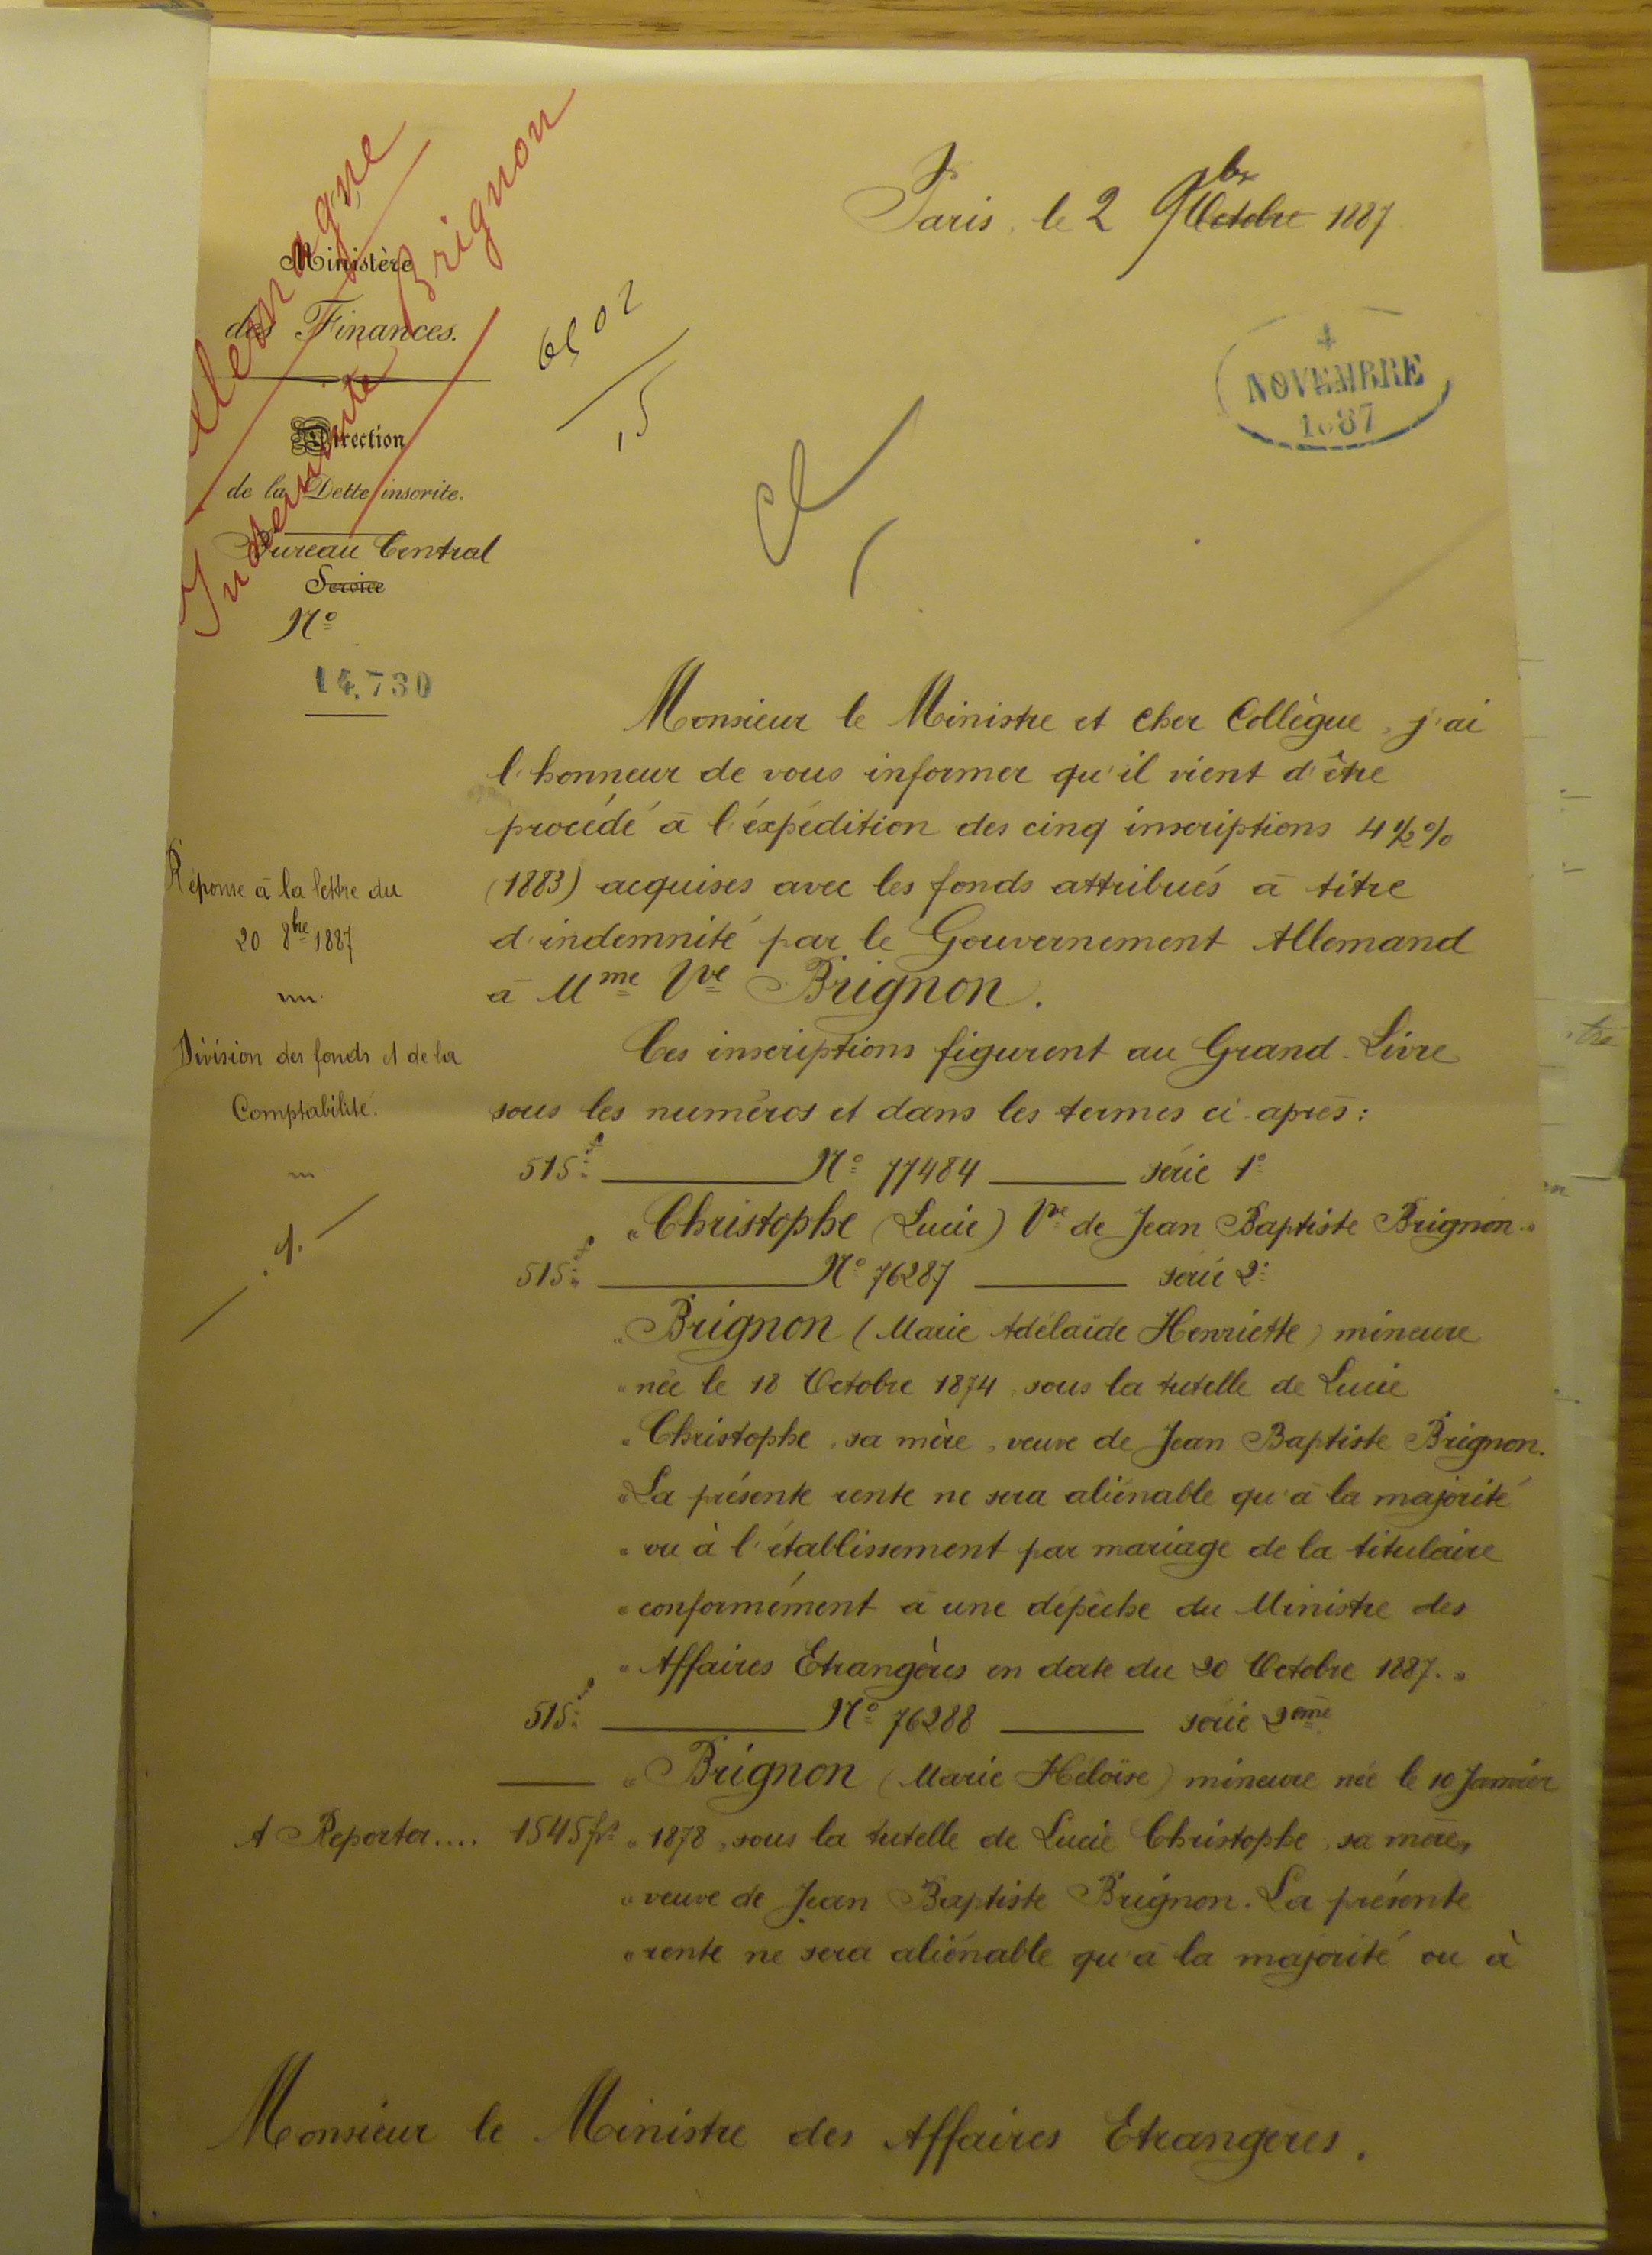 Allemagne
Indemnité Brignon
Paris, le 2 9bre Octobre 1887
Ministère
des Finances.
4
NOVEMBRE
1887
Direction
de la Dette inscrite.
Bureau Central
Service
N°
14.730
Monsieur le Ministre et cher Collègue, j'ai
l'honneur de vous informer qu'il vient d'être
procédé à l'éxpédition des cinq inscriptions 4 1/2 %
(1883) acquises avec les fonds attribués à titre
d'indemnité par le Gouvernement Allemand
à Mme Vve Brignon.
Réponse à la lettre du
20 8bre 1887
Division des fonds et de la
Comptabilité.
Ces inscriptions figurent au Grand-Livre
sous les numéros et dans les termes ci-après:
515 N° 77484 série 1e
" Christophe (Lucie) Vve de Jean Baptiste Brignon "
515 N° 76287 série 2e
" Brignon (Marie Adélaïde Henriette) mineure
" née le 18 Octobre 1874, sous la tutelle de Lucie
" Christophe, sa mère, veuve de Jean Baptiste Brignon.
" La présente rente ne sera aliénable qu'à la majorité
" ou à l'établissement par mariage de la titulaire
" conformément à une dépêche du Ministre des
" Affaires Etrangères en date du 20 Octobre 1887. "
515 N° 76288 série 2ème
" Brignon (Marie Héloïse) mineure née le 10 Janvier
A Reporter.... 1545 frs " 1878, sous la tutelle de Lucie Christophe, sa mère,
" veuve de Jean Baptiste Brignon. La présente
" rente ne sera aliénable qu'à la majorité ou à
Monsieur le Ministre des Affaires Etrangères.